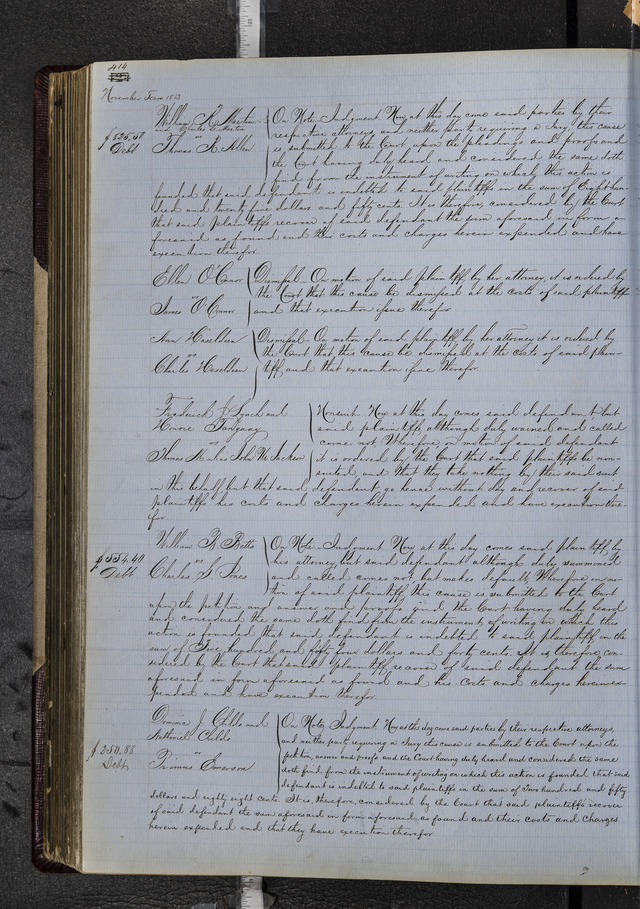 414
November Term 1853
William R. Martin
and Charles D. Martin
vs
Thomas R. Allen
$825.50
Debt
On Note. Judgment. Now at this day come said parties by their
respective attorneys and neither party requiring a Jury, this cause
is submitted to the Court upon the pleadings and proofs and
the Court having duly heard and considered the same doth
find from the instrument of writing on which this action is
founded that said defendant is indebted to said plaintiffs in the sum of Eight hun-
dred and twenty five dollars and fifty cents. It is therefore considered by the Court
that said plaintiffs recover of said defendant the sum aforesaid in form a-
foresaid as found and their costs and charges herein expended and have
execution therefor.
Ellen O'Conor
vs
James O'Connor
Dismissal. On motion of said plaintiff by her attorney, it is ordered by
the Court that this cause be dismissed at the costs of said plaintiff
and that execution issue therefor
Ann Haselden
vs
Charles Haselden
Dismissal. On motion of said plaintiff by her attorney it is ordered by
the Court that this cause be dismissed at the costs of said plain-
tiff and that execution issue therefor.
Frederick J. Lynch and
Honore Tanguay
vs
Thomas John M. Jackson
Nonsuit. Now at this day comes said defendant but
said plaintiffs although duly warned and called
come not. Wherefore on motion of said defendant
it is ordered by the Court that said plaintiffs be non-
suited and that they take nothing by their said suit
in this behalf but that said defendant go hence without day and recover of said
plaintiffs his costs and charges herein expended and have execution there-
for
William B. Betts
vs
Charles G. Jones
$554.40
Debt
On Note. Judgment. Now at this day comes said plaintiff by
his attorney but said defendant although duly summoned
and called comes not but makes default. Wherefore on mo-
tion of said plaintiff this cause is submitted to the Court
upon the petition and answer and proofs and the Court having duly heard
and considered the same doth find from the instrument of writing on which this
action is founded that said defendant is indebted to said plaintiff in the
sum of Five hundred and fifty four dollars and forty cents. It is therefore con-
sidered by the Court that said plaintiff recover of said defendant the sum
aforesaid in form aforesaid as found and his costs and charges herein ex-
pended and have execution therefor.
J. Childs and
Nathaniel Childs
vs
Primus Emerson
$250.88
Debt
On Note, Judgment. Now at this day come said parties by their respective attorneys,
and neither party requiring a Jury this cause is submitted to the Court upon the
petition, answer and proofs and the Court having duly heard and considered the same
doth find from the instrument of writing on which this action is founded that said
defendant is indebted to said plaintiffs in the sum of Two hundred and fifty
dollars and eighty eight cents. It is, therefore, considered by the Court that said plaintiffs recover
of said defendant the sum aforesaid in form aforesaid, as found and their costs and charges
herein expended and that they have execution therefor